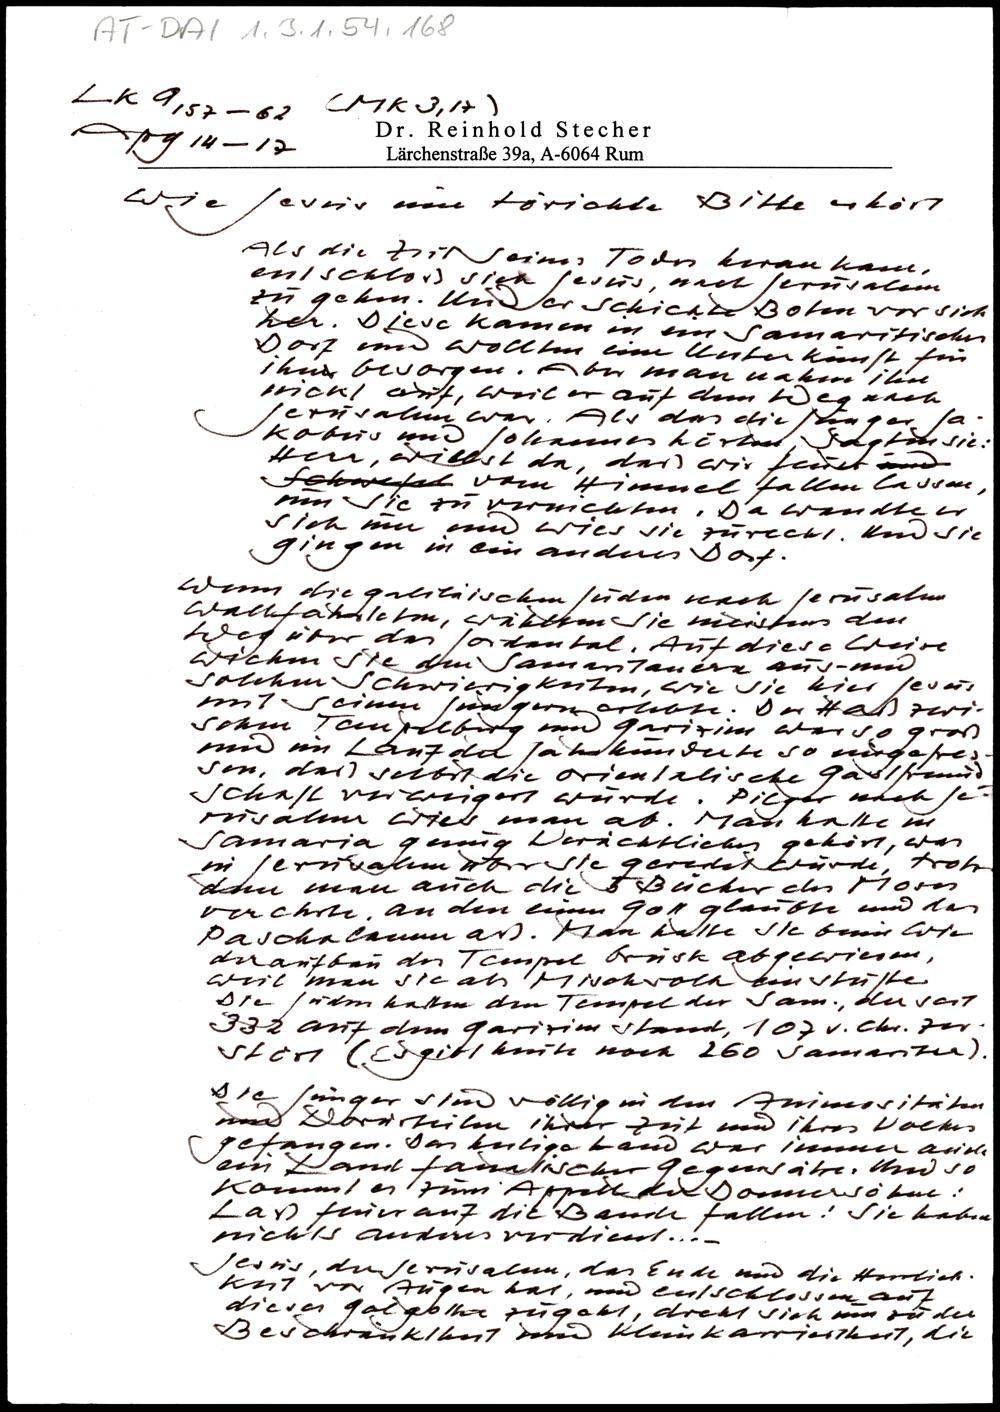 AT-DAI 1.3.1.54.168
LK 9,57-62 (MK 3,17)
Apg 14-17
Dr. Reinhold Stecher
Lärchenstraße 39a, A-6064 Rum
Wie Jesus eine törichte Bitte erhört
Als die Zeit seines Todes heran kam,
entschloß sich Jesus, nach Jerusalem
zu gehen. Und er schickte Boten vor sich
her. Diese kamen in ein samaritisches
Dorf und wollten eine Unterkunft für
ihn besorgen. Aber man nahm ihn
nicht auf, weil er auf dem Weg nach
Jerusalem war. Als das die Jünger Ja-
kobus und Johannes hörten, sagten sie:
Herr, willst du, daß wir Feuer und
Schwefel vom Himmel fallen lassen,
um sie zu vernichten. Da wandte er
sich um und wies sie zurecht. Und sie
gingen in ein anderes Dorf.
Wenn die galiläischen Juden nach Jerusalem
wallfahrteten, wählten sie meistens den
Weg über das Jordantal. Auf diese Weise
wichen sie den Samaritanern aus und
solchen Schwierigkeiten, wie sie hier Jesus
mit seinen Jüngern erlebte. Der Haß zwi-
schen Tempelberg und Garizim war so groß
und im Lauf der Jahrhunderte so eingefres-
sen, daß selbst die orientalische Gastfreund-
schaft verweigert wurde. Pilger nach Je-
rusalem wies man ab. Man hatte in
Samaria genug Verächtliches gehört, was
in Jerusalem über sie geredet wurde, trotz
dem man auch die 5 Bücher des Moses
verehrte, an den einen Gott glaubte und das
Paschalamm aß. Man hatte sie beim Wie
deraufbau des Tempel brüsk abgewiesen,
weil man sie als Mischvolk einstufte
Die Juden hatten den Tempel der Sam., der seit
332 auf dem Garizim stand, 107 v. Chr. zer-
stört (Es gibt heute noch 260 Samariter).
Die Jünger sind völlig in den Animositäten
und Vorurteilen ihrer Zeit und ihres Volkes
gefangen. Das heilige Land war immer auch
ein Land fanatischer Gegensätze. Und so
kommt es zum Appell der Donnersöhne:
Laß Feuer auf die Bande fallen! Sie haben
nichts anderes verdient....
Jesus, der Jerusalem, das Ende und die Herrlich-
keit vor Augen hat, und entschlossen auf
dieses Golgotha zugeht, dreht sich um zu der
Beschränktheit und Kleinkariertheit, die